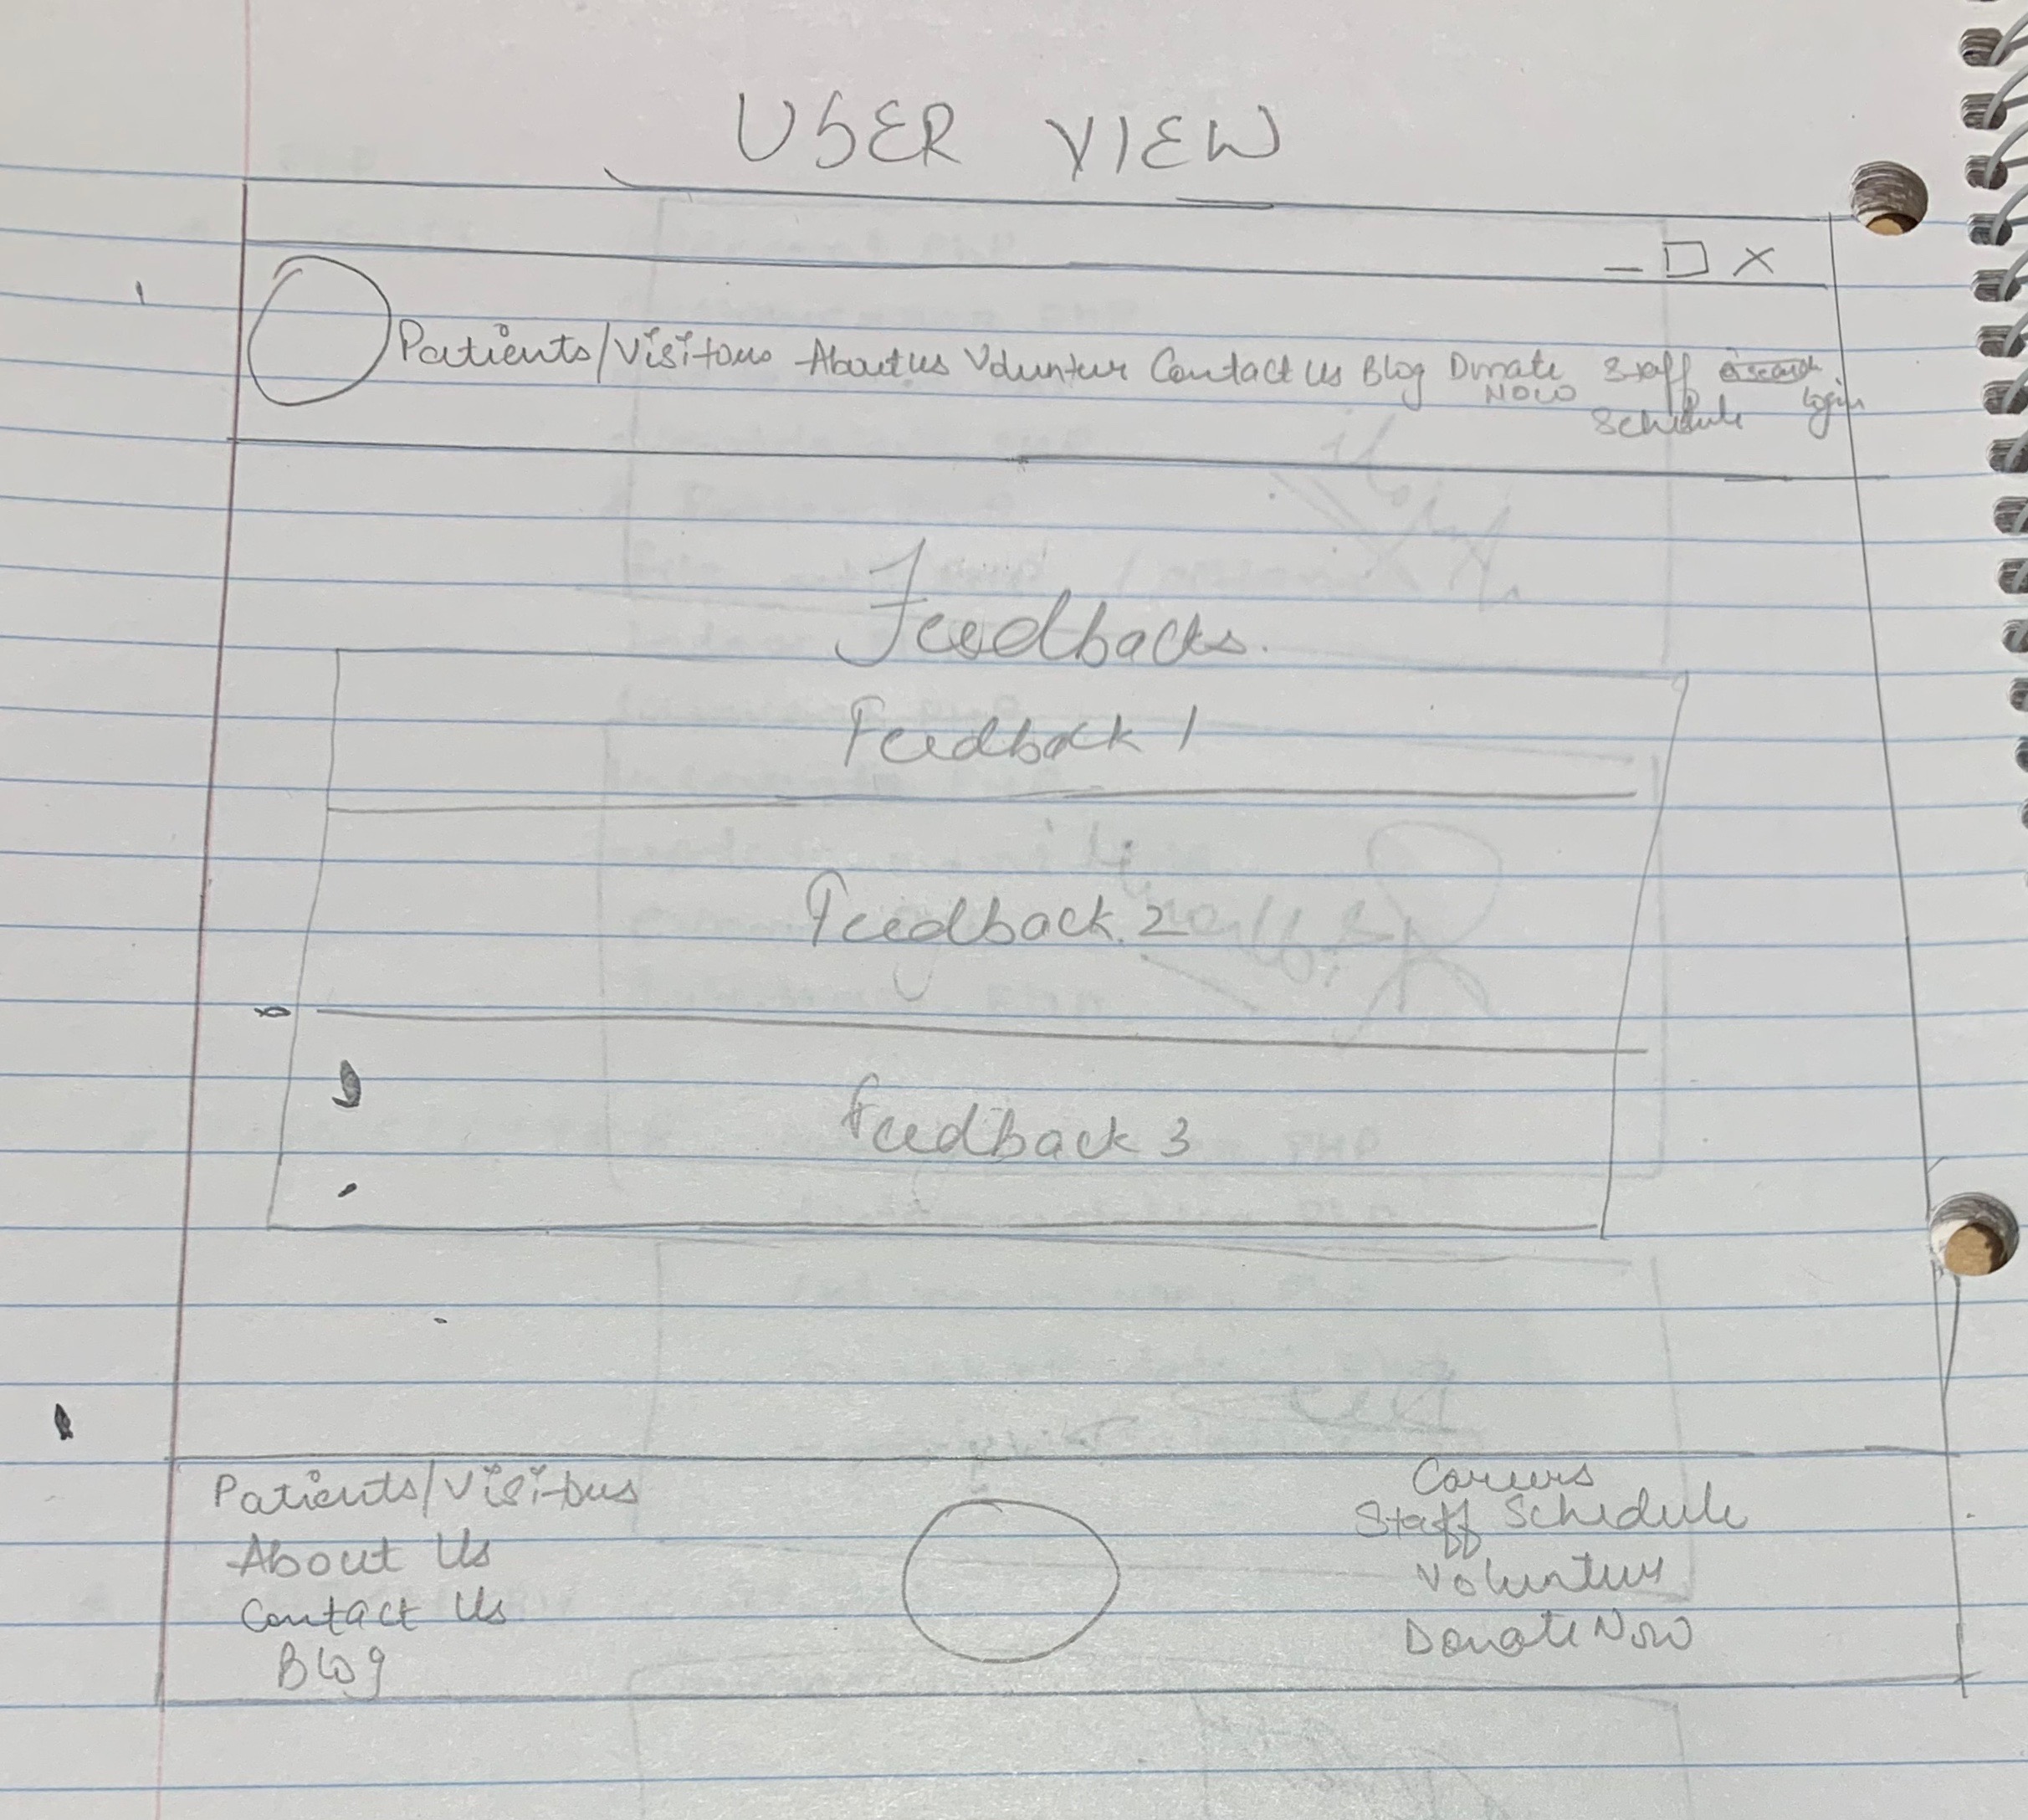 USER VIEW
Patients/Visitors About us Volunteer Contact Us Blog Donate Now Staff Schedule Login
Feedbacks.
Feedback 1
Feedback 2
Feedback 3
Patients/Visitors
About Us
Contact Us
Blog
Careers
Staff Schedule
Volunteer
Donate Now